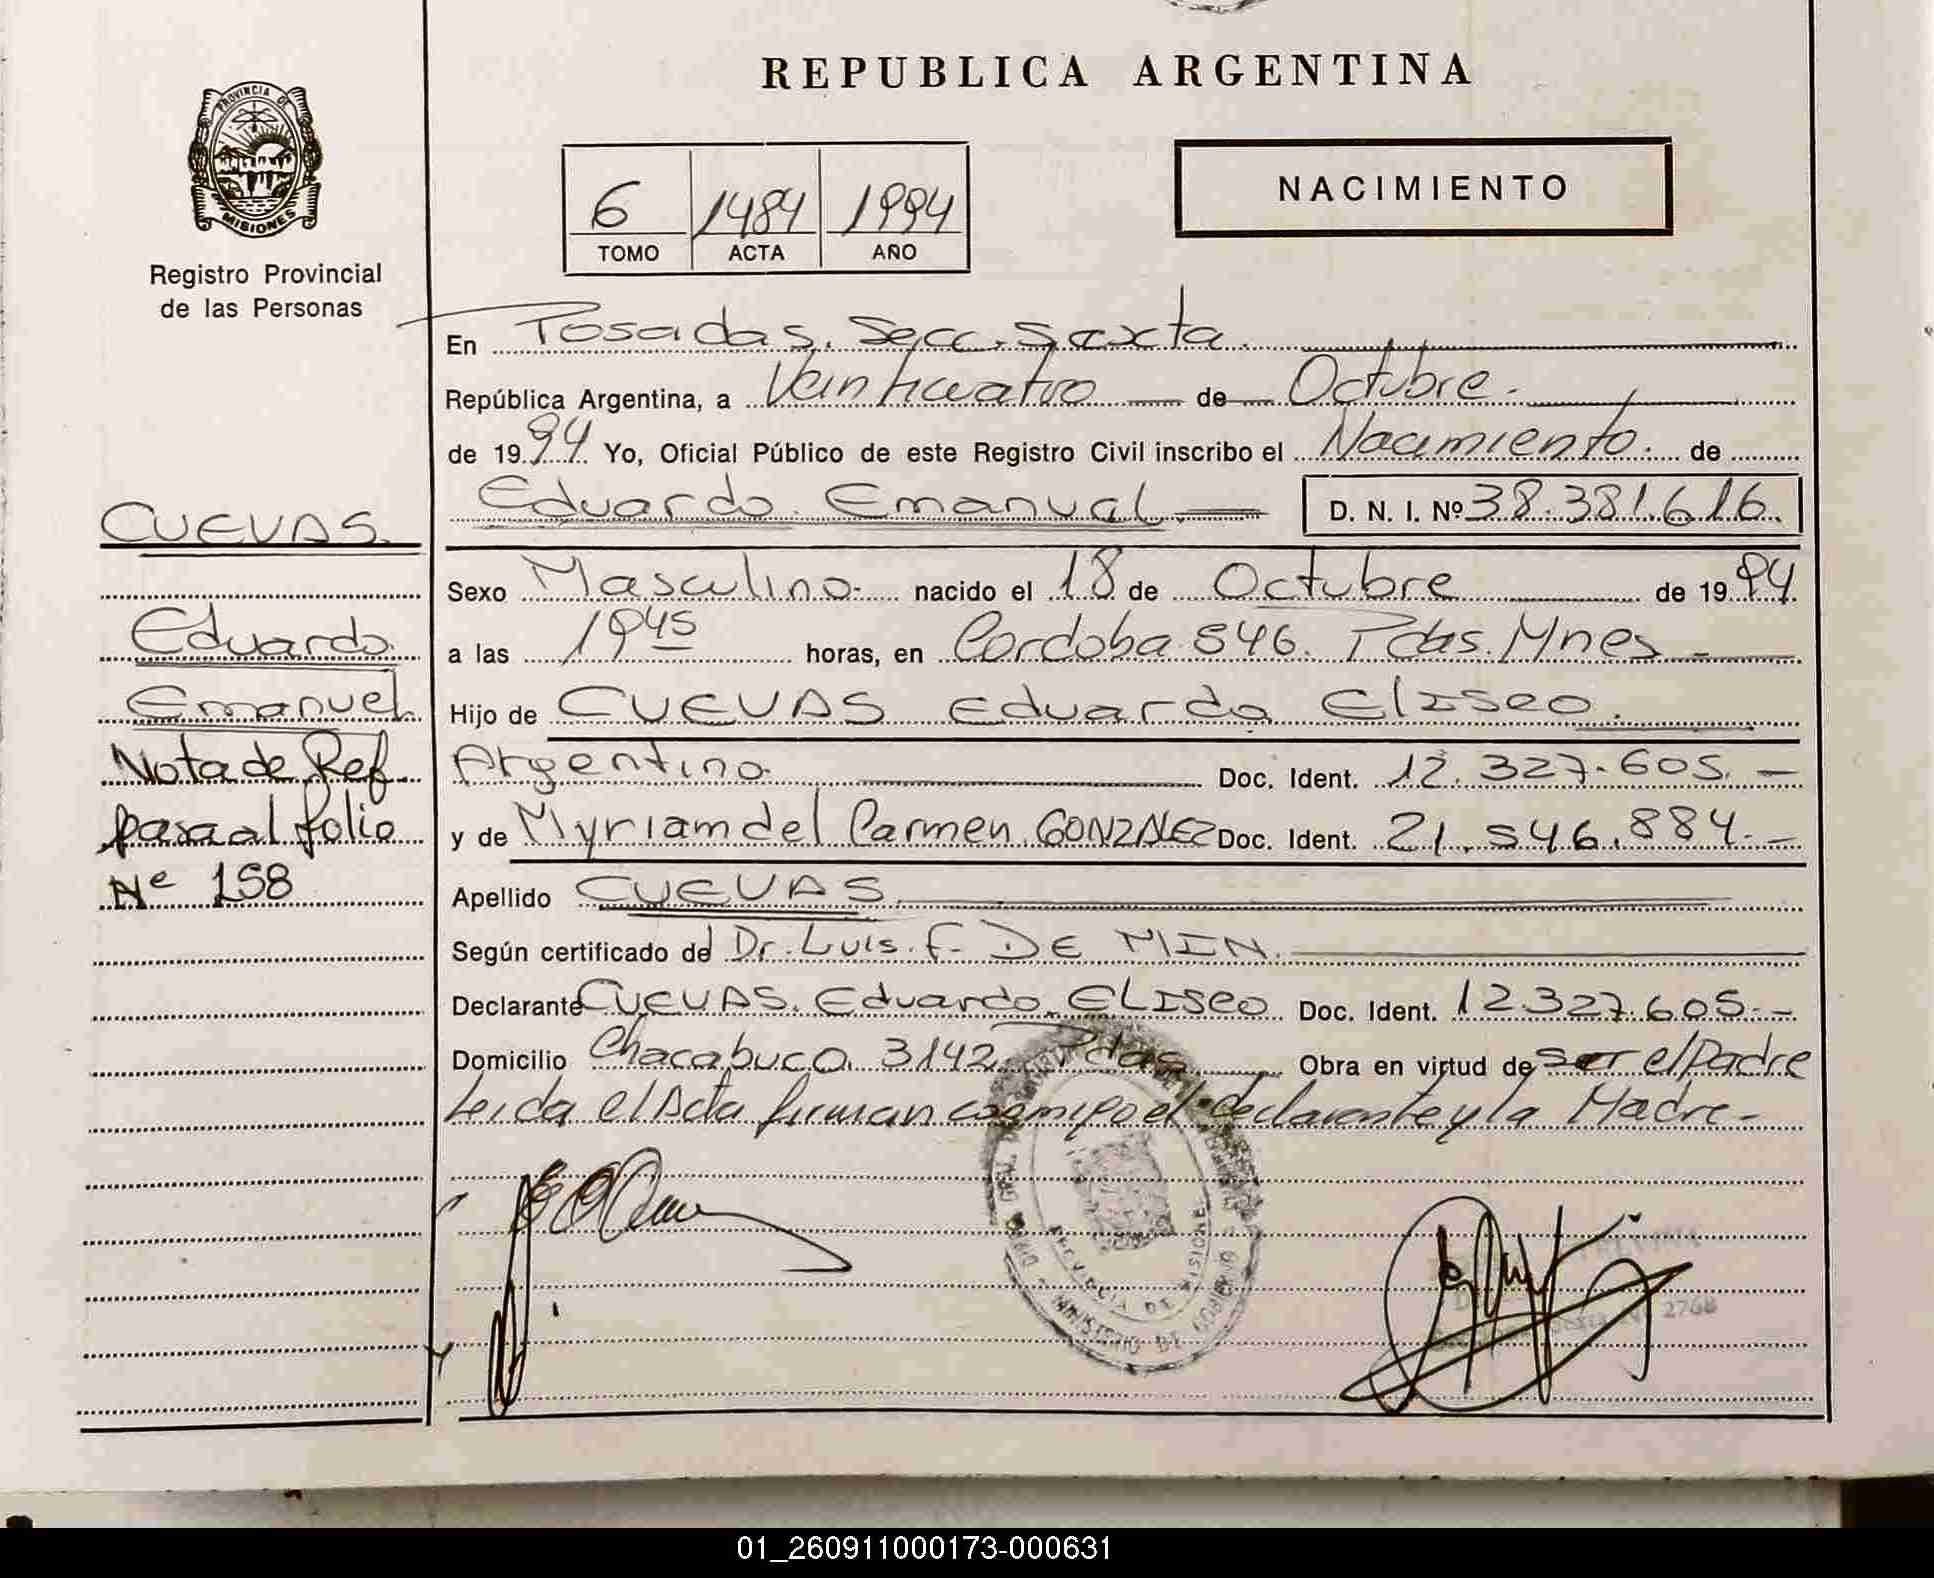 REPUBLICA ARGENTINA
PROVINCIA DE
MISIONES
Registro Provincial
de las Personas
6 1484 1994
TOMO ACTA AÑO
NACIMIENTO
En Posadas. Secc. Sexta.
República Argentina, a Veinticuatro de Octubre.
de 1994 Yo, Oficial Público de este Registro Civil inscribo el Nacimiento. de
Eduardo Emanuel. D. N. I. Nº 38.381.616.
Sexo Masculino. nacido el 18 de Octubre de 1994
a las 1945 horas, en Cordoba 546. Pdas. Mnes
Hijo de CUEVAS Eduardo Eliseo.
Argentino. Doc. Ident. 12.327.605.-
y de Myriam del Carmen GONZALEZ Doc. Ident. 21.546.884.-
Apellido CUEVAS
Según certificado de Dr. Luis. F. DE MIN.
Declarante CUEVAS. Eduardo. ELISEO Doc. Ident. 12.327.605.-
Domicilio Chacabuco. 3142 Pdas Obra en virtud de ser el Padre
Leida el Acta firman conmigo el declarante y la Madre-
CUEVAS.
Eduardo.
Emanuel.
Nota de Ref.
pasa al folio
Nº 158
PROVINCIA DE MISIONES
MINISTERIO DE GOBIERNO
2768
01_260911000173-000631